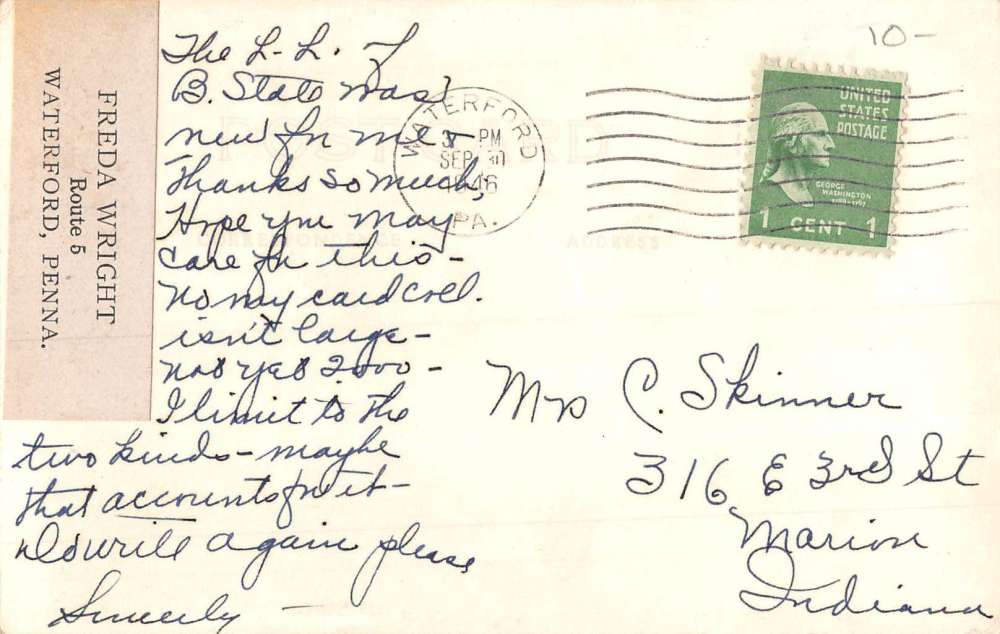 FREDA WRIGHT
Route 5
WATERFORD, PENNA.
The L-L. of
B. State was
new for me -
Thanks so much,
Hope you may
care for this -
No my card coll.
isn't large -
not yet 2000 -
I limit to the
two kinds - maybe
that accounts for it -
Do write again please
Sincerely -
WATERFORD
PM
SEP 30
1946
PA.
10-
UNITED
STATES
POSTAGE
GEORGE
WASHINGTON
1 CENT 1
POSTCARD
CORRESPONDENCE
ADDRESS
Mrs C. Skinner
316 E 3rd St
Marion
Indiana